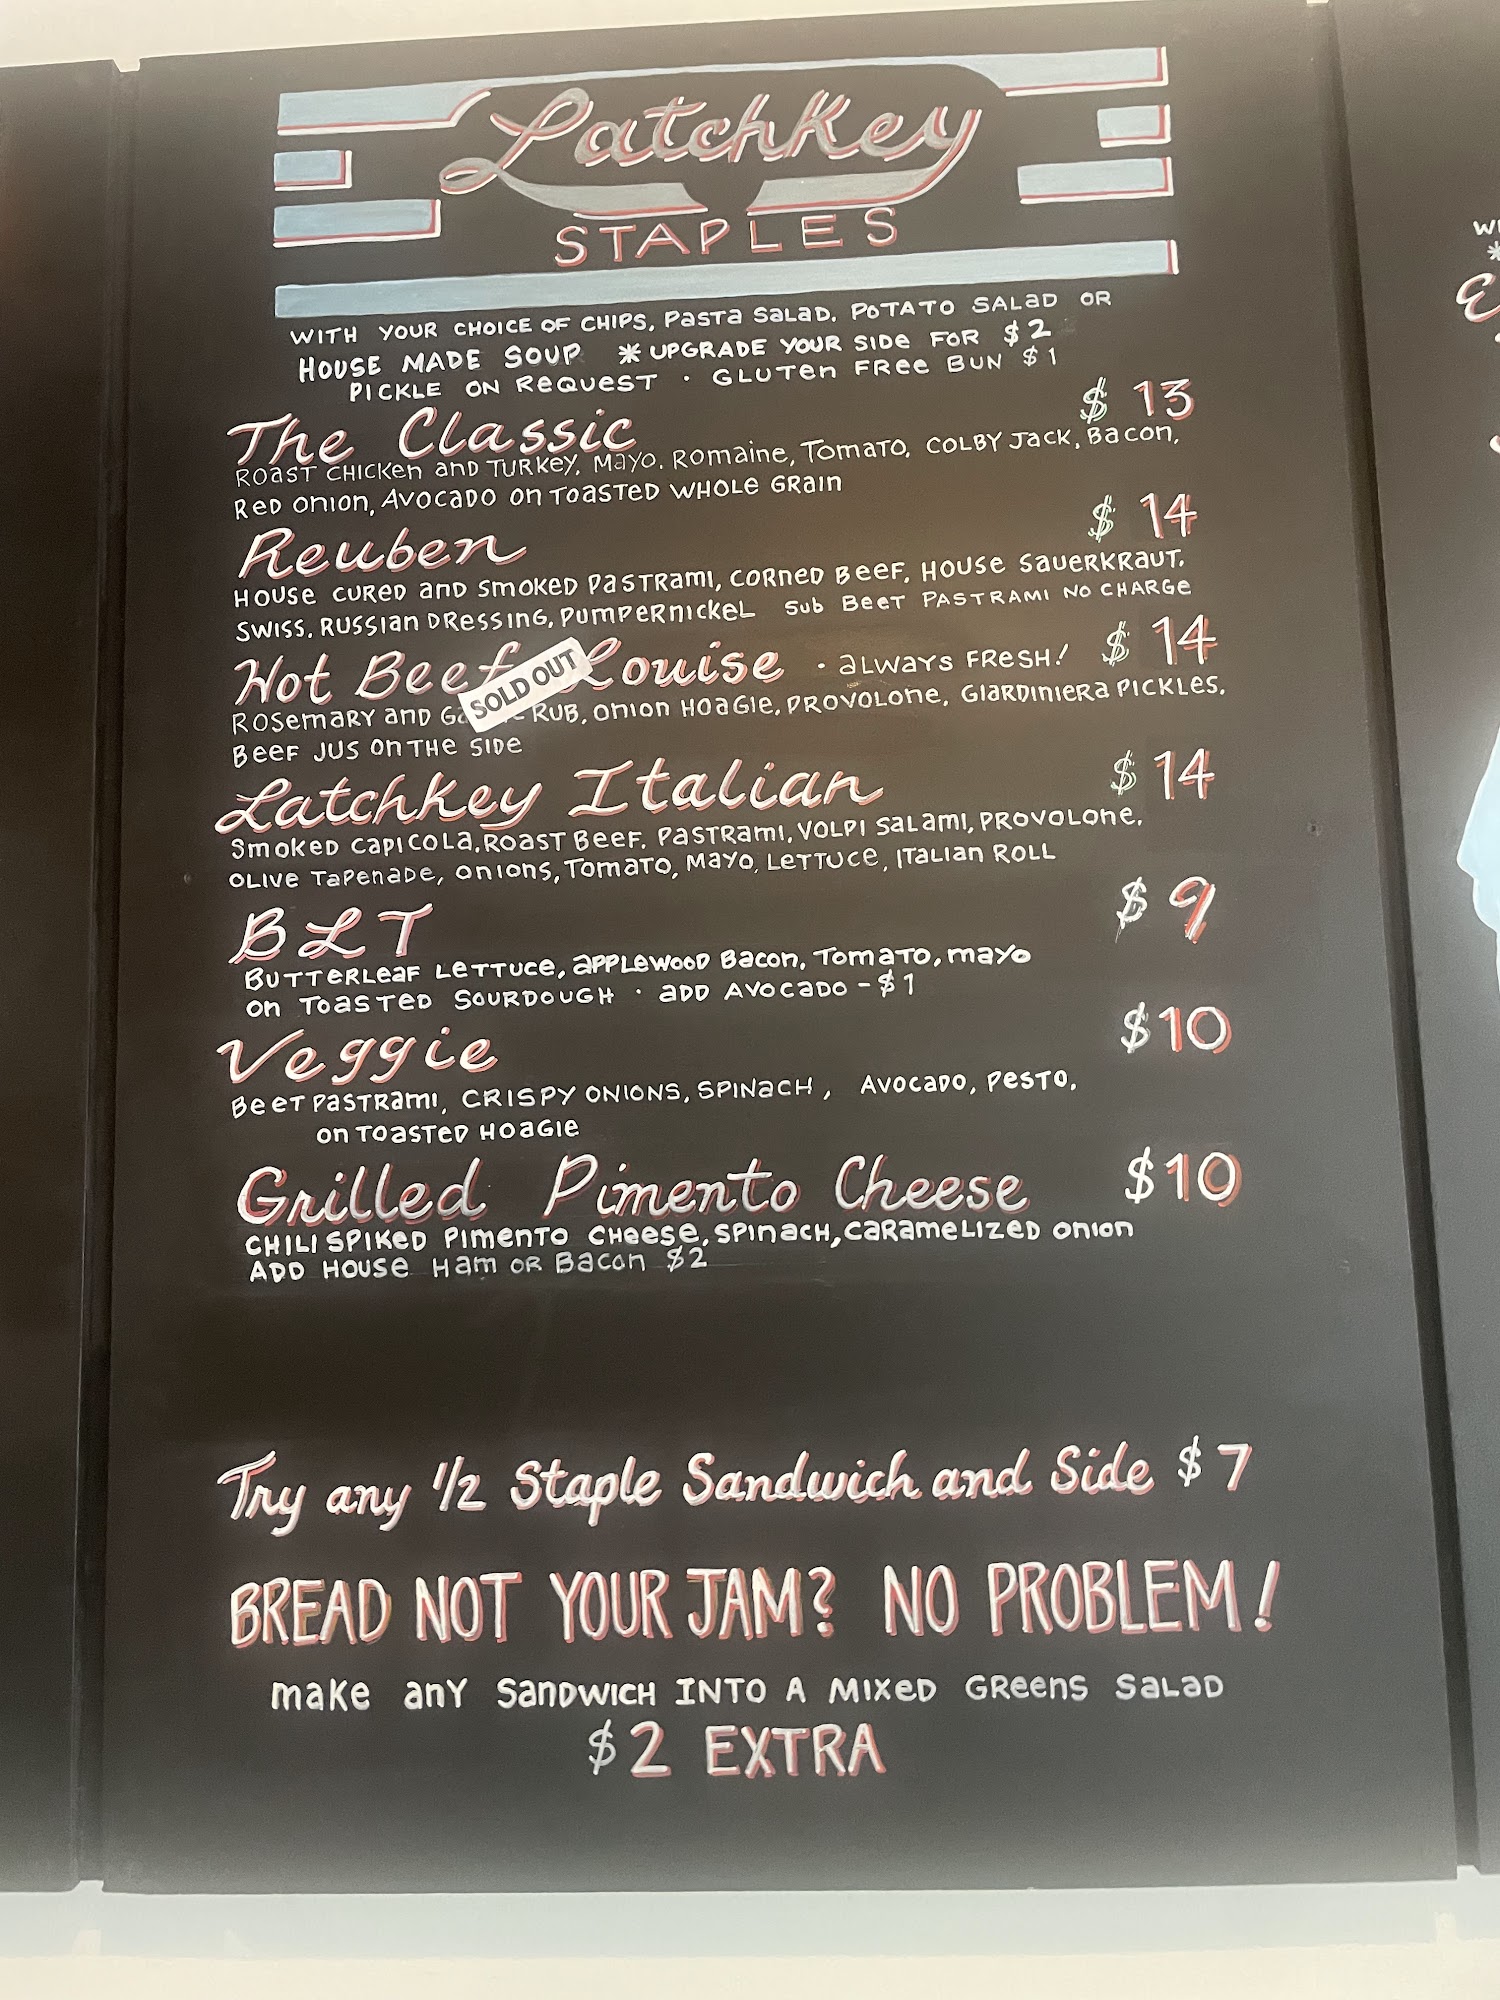 Latchkey
STAPLES
WITH YOUR CHOICE OF CHIPS, PASTA SALAD, POTATO SALAD OR
HOUSE MADE SOUP * UPGRADE YOUR SIDE FOR $2
PICKLE ON REQUEST · GLUTEN FREE BUN $1
The Classic $13
ROAST CHICKEN AND TURKEY, MAYO, ROMAINE, TOMATO, COLBY JACK, BACON,
RED ONION, AVOCADO ON TOASTED WHOLE GRAIN
Reuben $14
HOUSE CURED AND SMOKED PASTRAMI, CORNED BEEF, HOUSE SAUERKRAUT,
SWISS, RUSSIAN DRESSING, PUMPERNICKEL SUB BEET PASTRAMI NO CHARGE
Hot Beef Louise · ALWAYS FRESH! $14
SOLD OUT
ROSEMARY AND RUB, ONION HOAGIE, PROVOLONE, GIARDINIERA PICKLES,
BEEF JUS ON THE SIDE
Latchkey Italian $14
SMOKED CAPICOLA, ROAST BEEF, PASTRAMI, VOLPI SALAMI, PROVOLONE,
OLIVE TAPENADE, ONIONS, TOMATO, MAYO, LETTUCE, ITALIAN ROLL
BLT $9
BUTTERLEAF LETTUCE, APPLEWOOD BACON, TOMATO, MAYO
ON TOASTED SOURDOUGH · ADD AVOCADO - $1
Veggie $10
BEET PASTRAMI, CRISPY ONIONS, SPINACH, AVOCADO, PESTO,
ON TOASTED HOAGIE
Grilled Pimento Cheese $10
CHILI SPIKED PIMENTO CHEESE, SPINACH, CARAMELIZED ONION
ADD HOUSE HAM OR BACON $2
Try any 1/2 Staple Sandwich and Side $7
BREAD NOT YOUR JAM? NO PROBLEM!
MAKE ANY SANDWICH INTO A MIXED GREENS SALAD
$2 EXTRA